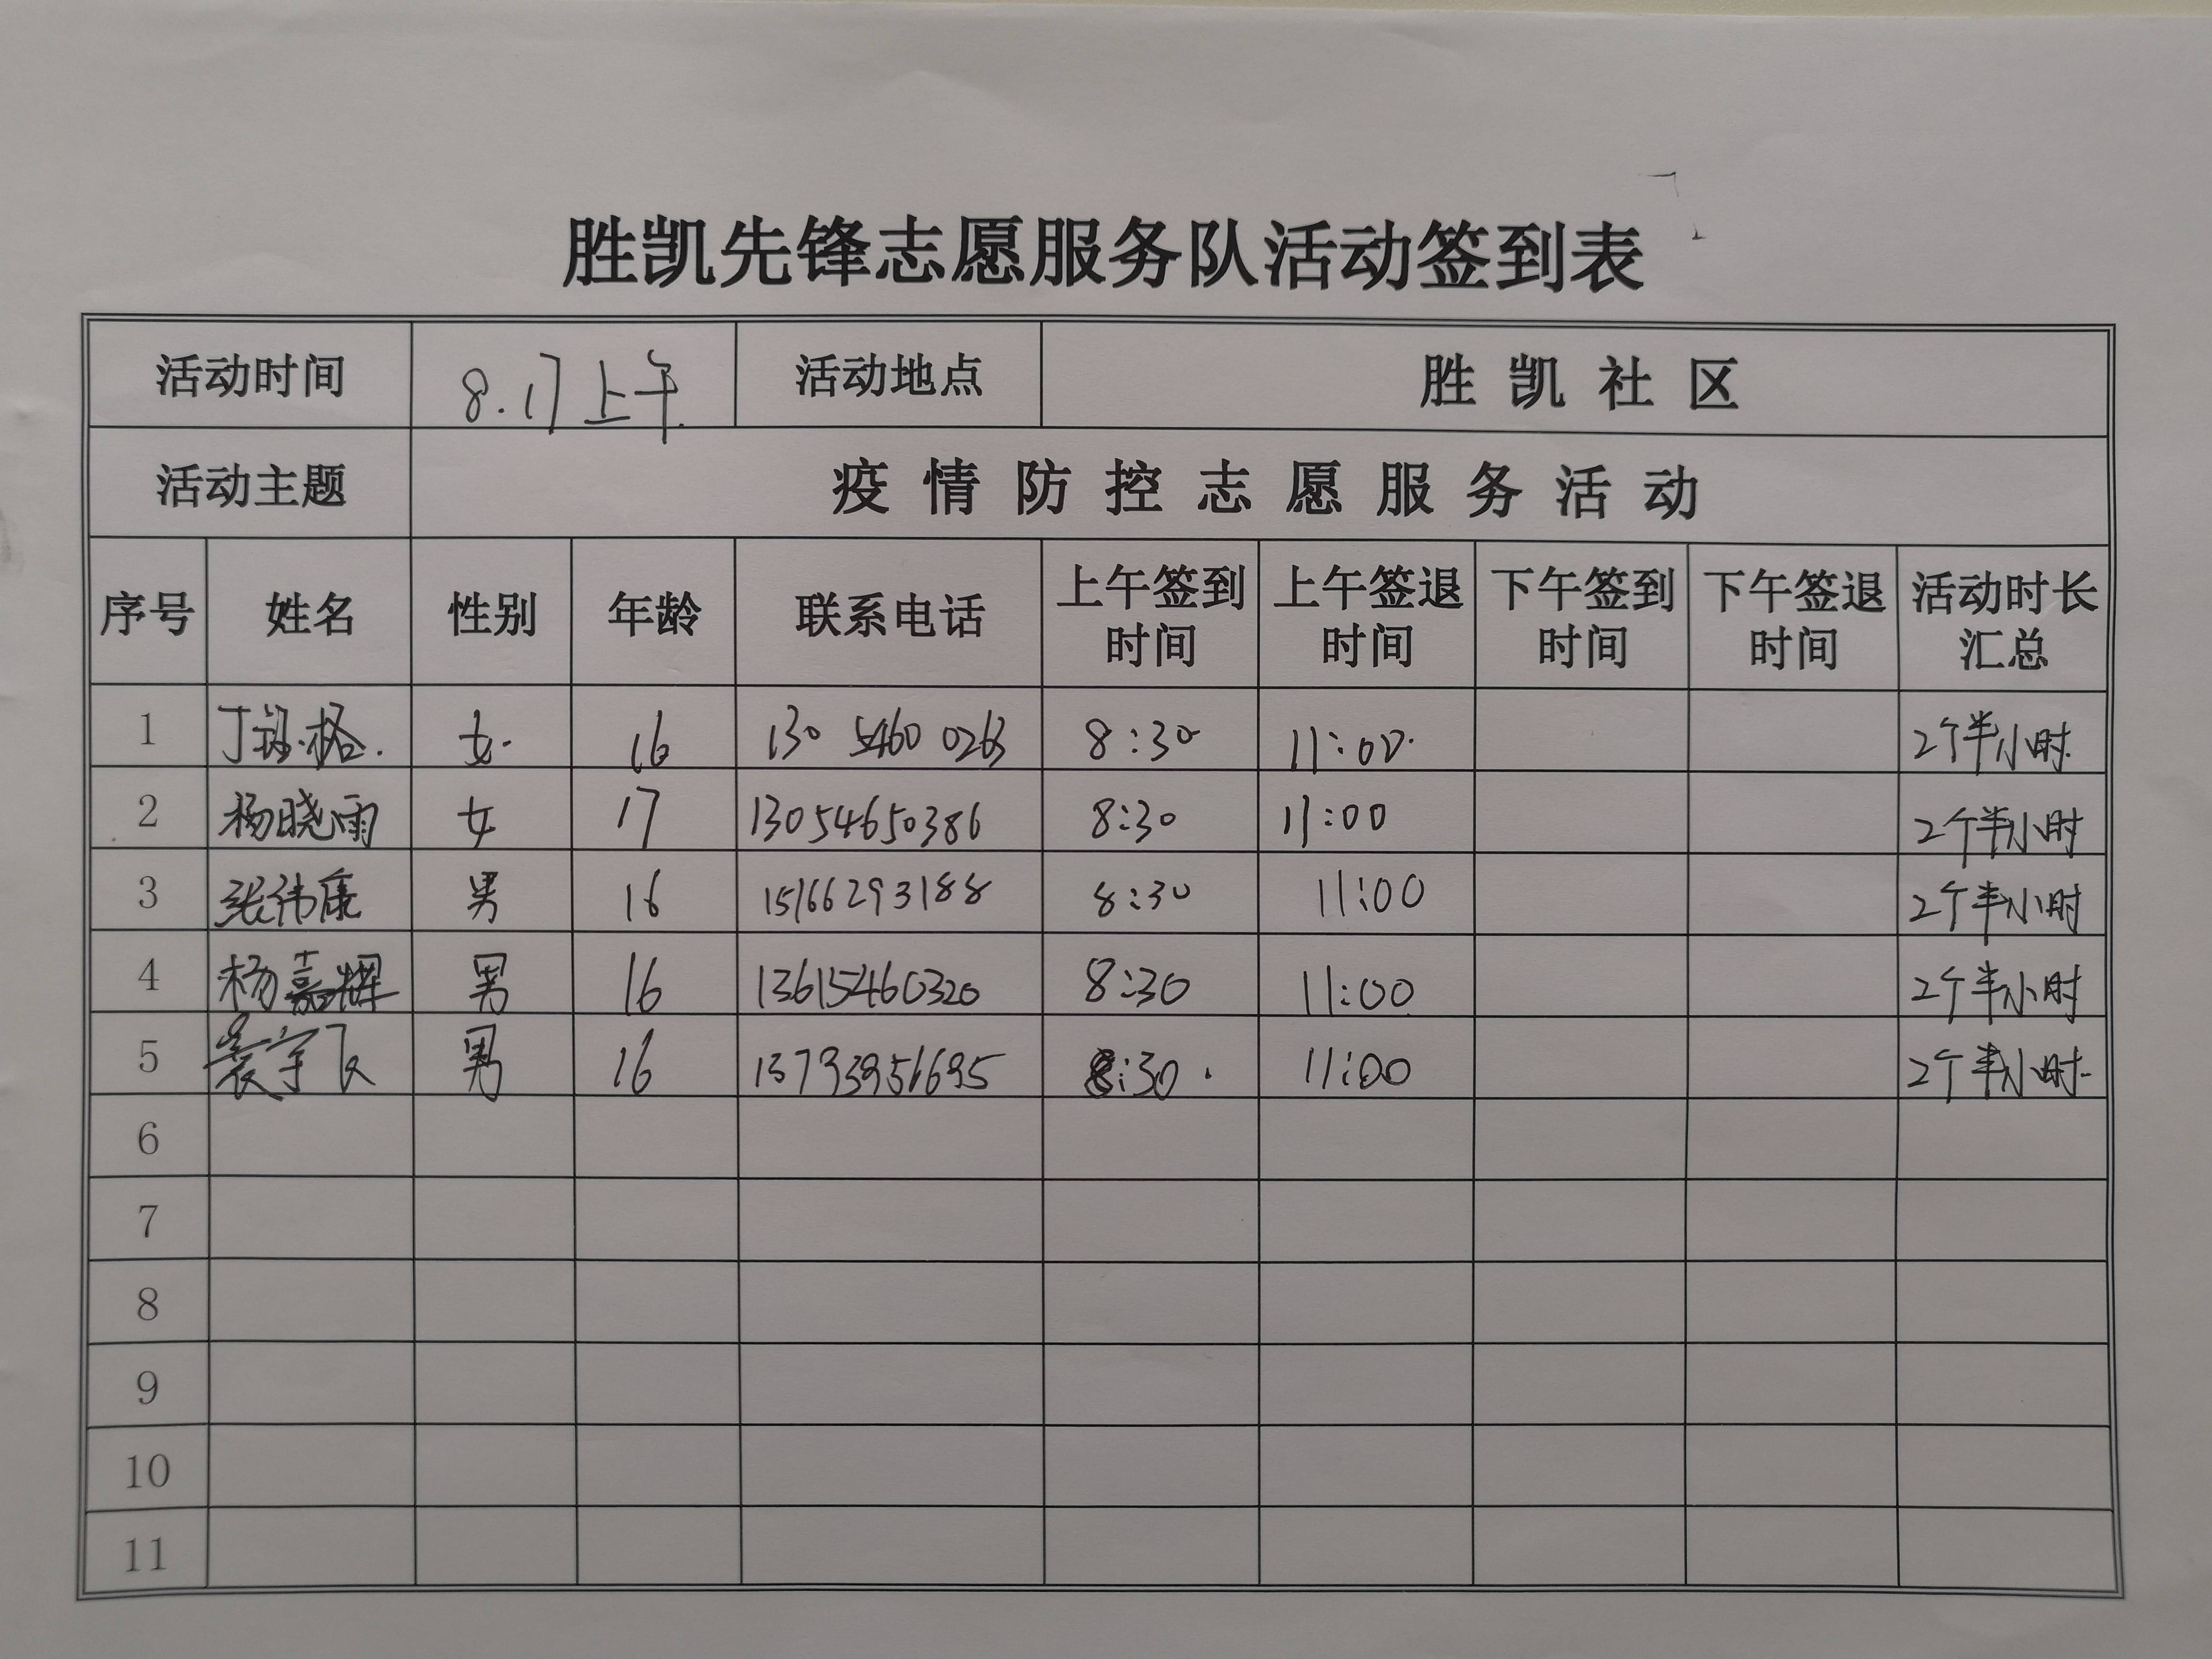 胜凯先锋志愿服务队活动签到表
活动时间 8.17上午 活动地点 胜凯社区
活动主题 疫情防控志愿服务活动
序号 姓名 性别 年龄 联系电话 上午签到时间 上午签退时间 下午签到时间 下午签退时间 活动时长汇总
1 丁格 女 16 130 5460 0263 8:30 11:00 2个半小时
2 杨晓雨 女 17 13054650386 8:30 11:00 2个半小时
3 张伟康 男 16 15166293188 8:30 11:00 2个半小时
4 杨嘉辉 男 16 13615460320 8:30 11:00 2个半小时
5 袁宇飞 男 16 13793956695 8:30 11:00 2个半小时
6
7
8
9
10
11